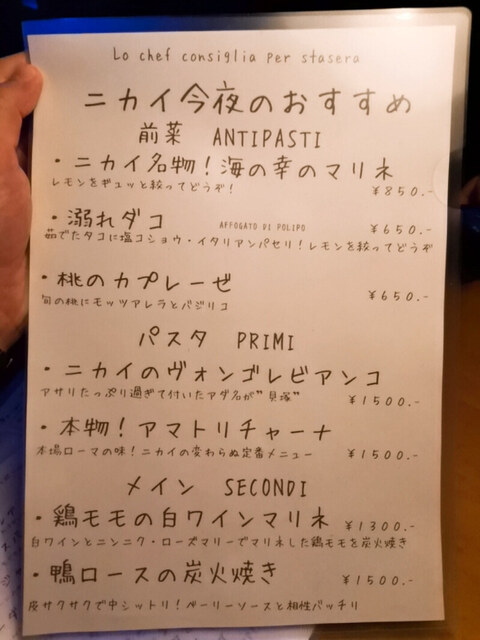 Lo chef consiglia per stasera
ニカイ今夜のおすすめ
前菜 ANTIPASTI
・ニカイ名物!海の幸のマリネ
レモンをギュッと絞ってどうぞ! ¥850.-
・溺れダコ AFFOGATO DI POLIPO ¥650.-
茹でたタコに塩コショウ・イタリアンパセリ!レモンを絞ってどうぞ
・桃のカプレーゼ ¥650.-
旬の桃にモッツアレラとバジリコ
パスタ PRIMI
・ニカイのヴォンゴレビアンコ
アサリたっぷり過ぎて付いたアダ名が"貝塚" ¥1500.-
・本物!アマトリチャーナ
本場ローマの味!ニカイの変わらぬ定番メニュー ¥1500.-
メイン SECONDI
・鶏モモの白ワインマリネ ¥1300.-
白ワインとニンニク・ローズマリーでマリネした鶏モモを炭火焼き
・鴨ロースの炭火焼き ¥1500.-
皮サクサクで中シットリ!ベリーソースと相性バッチリ